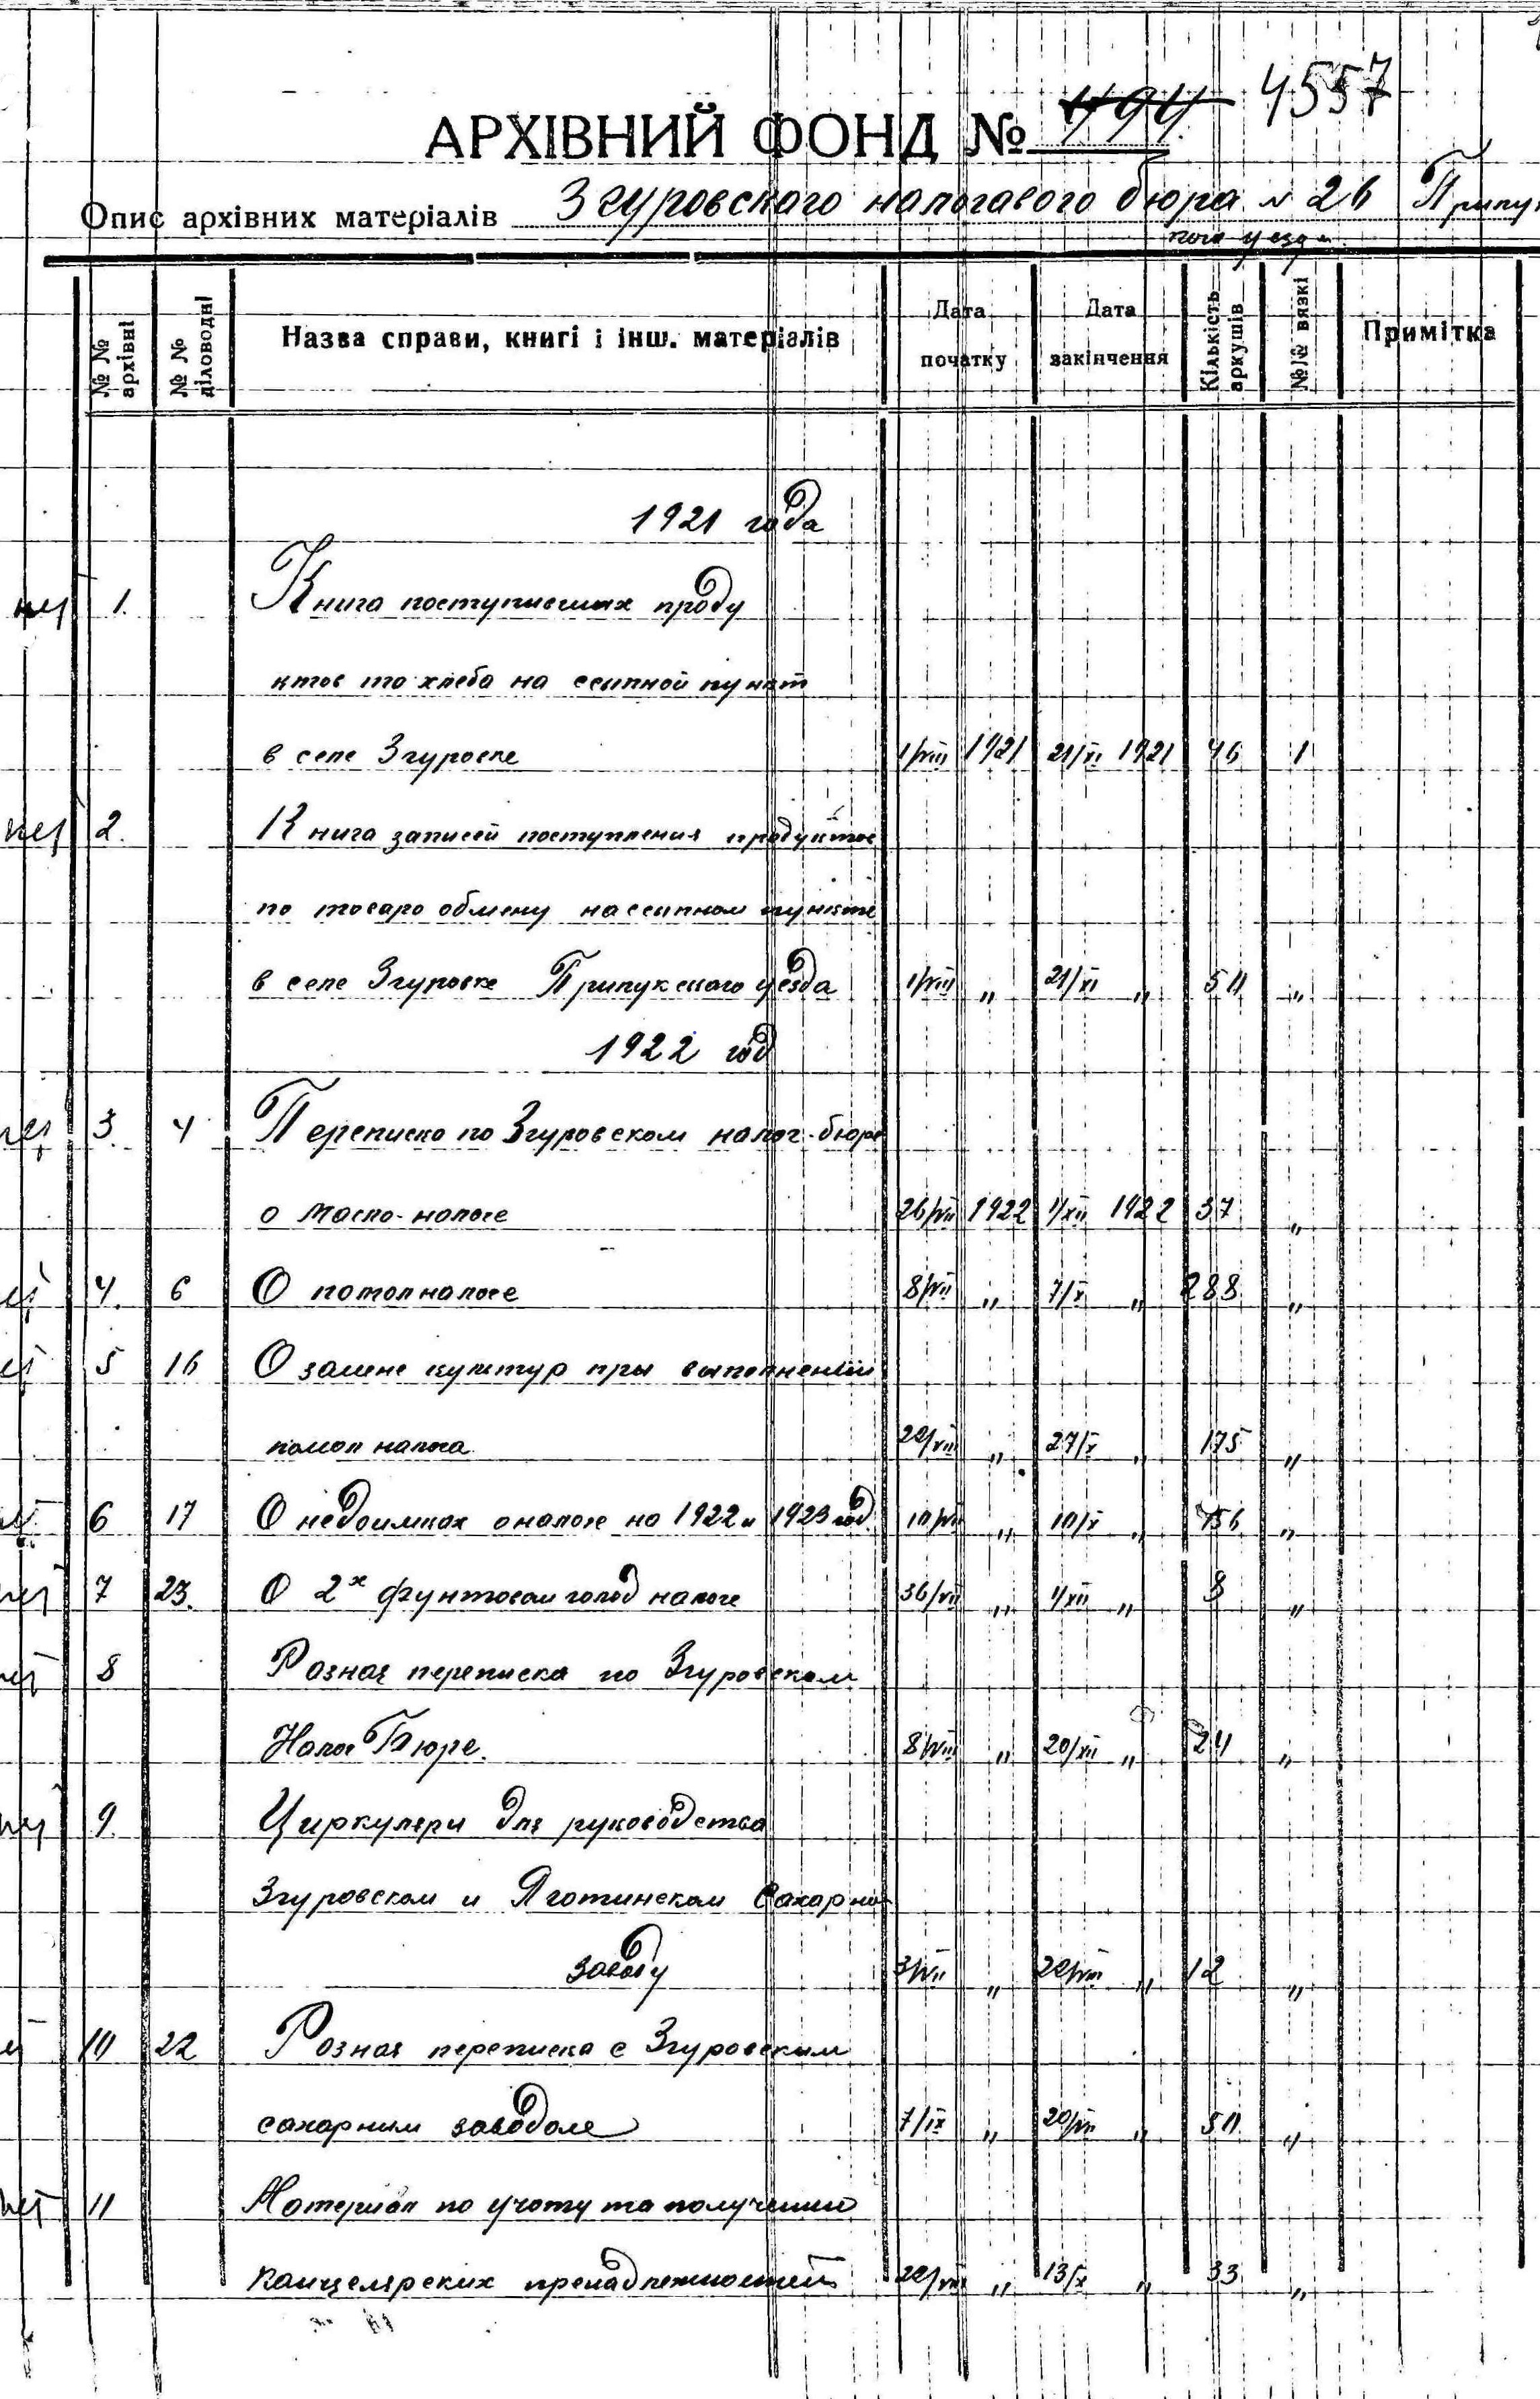 4557
АРХІВНИЙ ФОНД № 494
Опис архівних матеріалів Згуровского налогавого бюра № 26 Прилу
кого уезда
№ № архівні
№ № діловодні
Назва справи, книгі і інш. матеріалів
Дата початку
Дата закінчення
Кількість аркушів
№№ вязкі
Примітка
1921 года
1. Книга поступивших проду
ктов та хлеба на ссыпной пункт
в селе Згуровке 1/VIII 1921 21/XI 1921 46 1
2. Книга записей поступления продуктов
по товаро обмену на ссыпном пункте
в селе Згуровке Прилукского уезда 1/VIII " 21/XI " 50 "
1922 год
3. 4 Переписка по Згуровском налог-бюре
о масло-налоге 26/VII 1922 1/XII 1922 37 "
4. 6 О помолналоге 8/VII " 7/X " 288 "
5 16 О замене культур при выполнении
помол налога 22/VIII " 27/X " 175 "
6 17 О недоимках о налоге на 1922 и 1923 год 10/VII " 10/X " 156 "
7 23. О 2х фунтовом голод налоге 36/VII " 1/XII " 8 "
8 Разная переписка по Згуровском
Налог Бюре. 8/VIII " 20/XII " 24 "
9. Циркуляри для руководства
Згуровском и Яготинском Сахарно
заводу 3/VII " 22/VIII " 12 "
10 22 Розная переписка с Згуровским
сахарным заводом 7/IX " 20/XII " 50 "
11 Материал по учоту та получению
канцелярских пренадлежностей 22/VIII " 13/X " 33 "